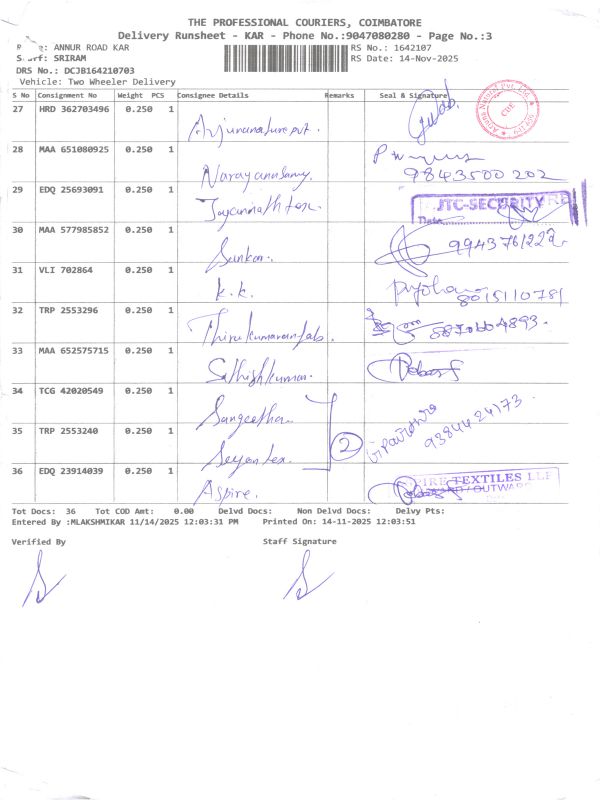 THE PROFESSIONAL COURIERS, COIMBATORE
Delivery Runsheet - KAR - Phone No.:9047080280 - Page No.:3
ANNUR ROAD KAR
RS No.: 1642107
SRIRAM
RS Date: 14-Nov-2025
DRS No.: DCJB164210703
Vehicle: Two Wheeler Delivery
S No Consignment No Weight PCS Consignee Details Remarks Seal & Signature
27 HRD 362703496 0.250 1
28 MAA 651080925 0.250 1 Narayanasamy 9843500202
29 EDQ 25693091 0.250 1 Jayannath tex. JTC-SECURITY
Date
30 MAA 577985852 0.250 1 Sankar. 9943761222
31 VLI 702864 0.250 1 K.K. 8015110781
32 TRP 2553296 0.250 1 Thirukumaran fab.
33 MAA 652575715 0.250 1 Sathishkumar.
34 TCG 42020549 0.250 1 Sangeetha 9384424173.
35 TRP 2553240 0.250 1 2
36 EDQ 23914039 0.250 1 Aspire. TEXTILES LLP
OUTWARD
Tot Docs: 36 Tot COD Amt: 0.00 Delvd Docs: Non Delvd Docs: Delvy Pts:
Entered By :MLAKSHMIKAR 11/14/2025 12:03:31 PM Printed On: 14-11-2025 12:03:51
Verified By Staff Signature